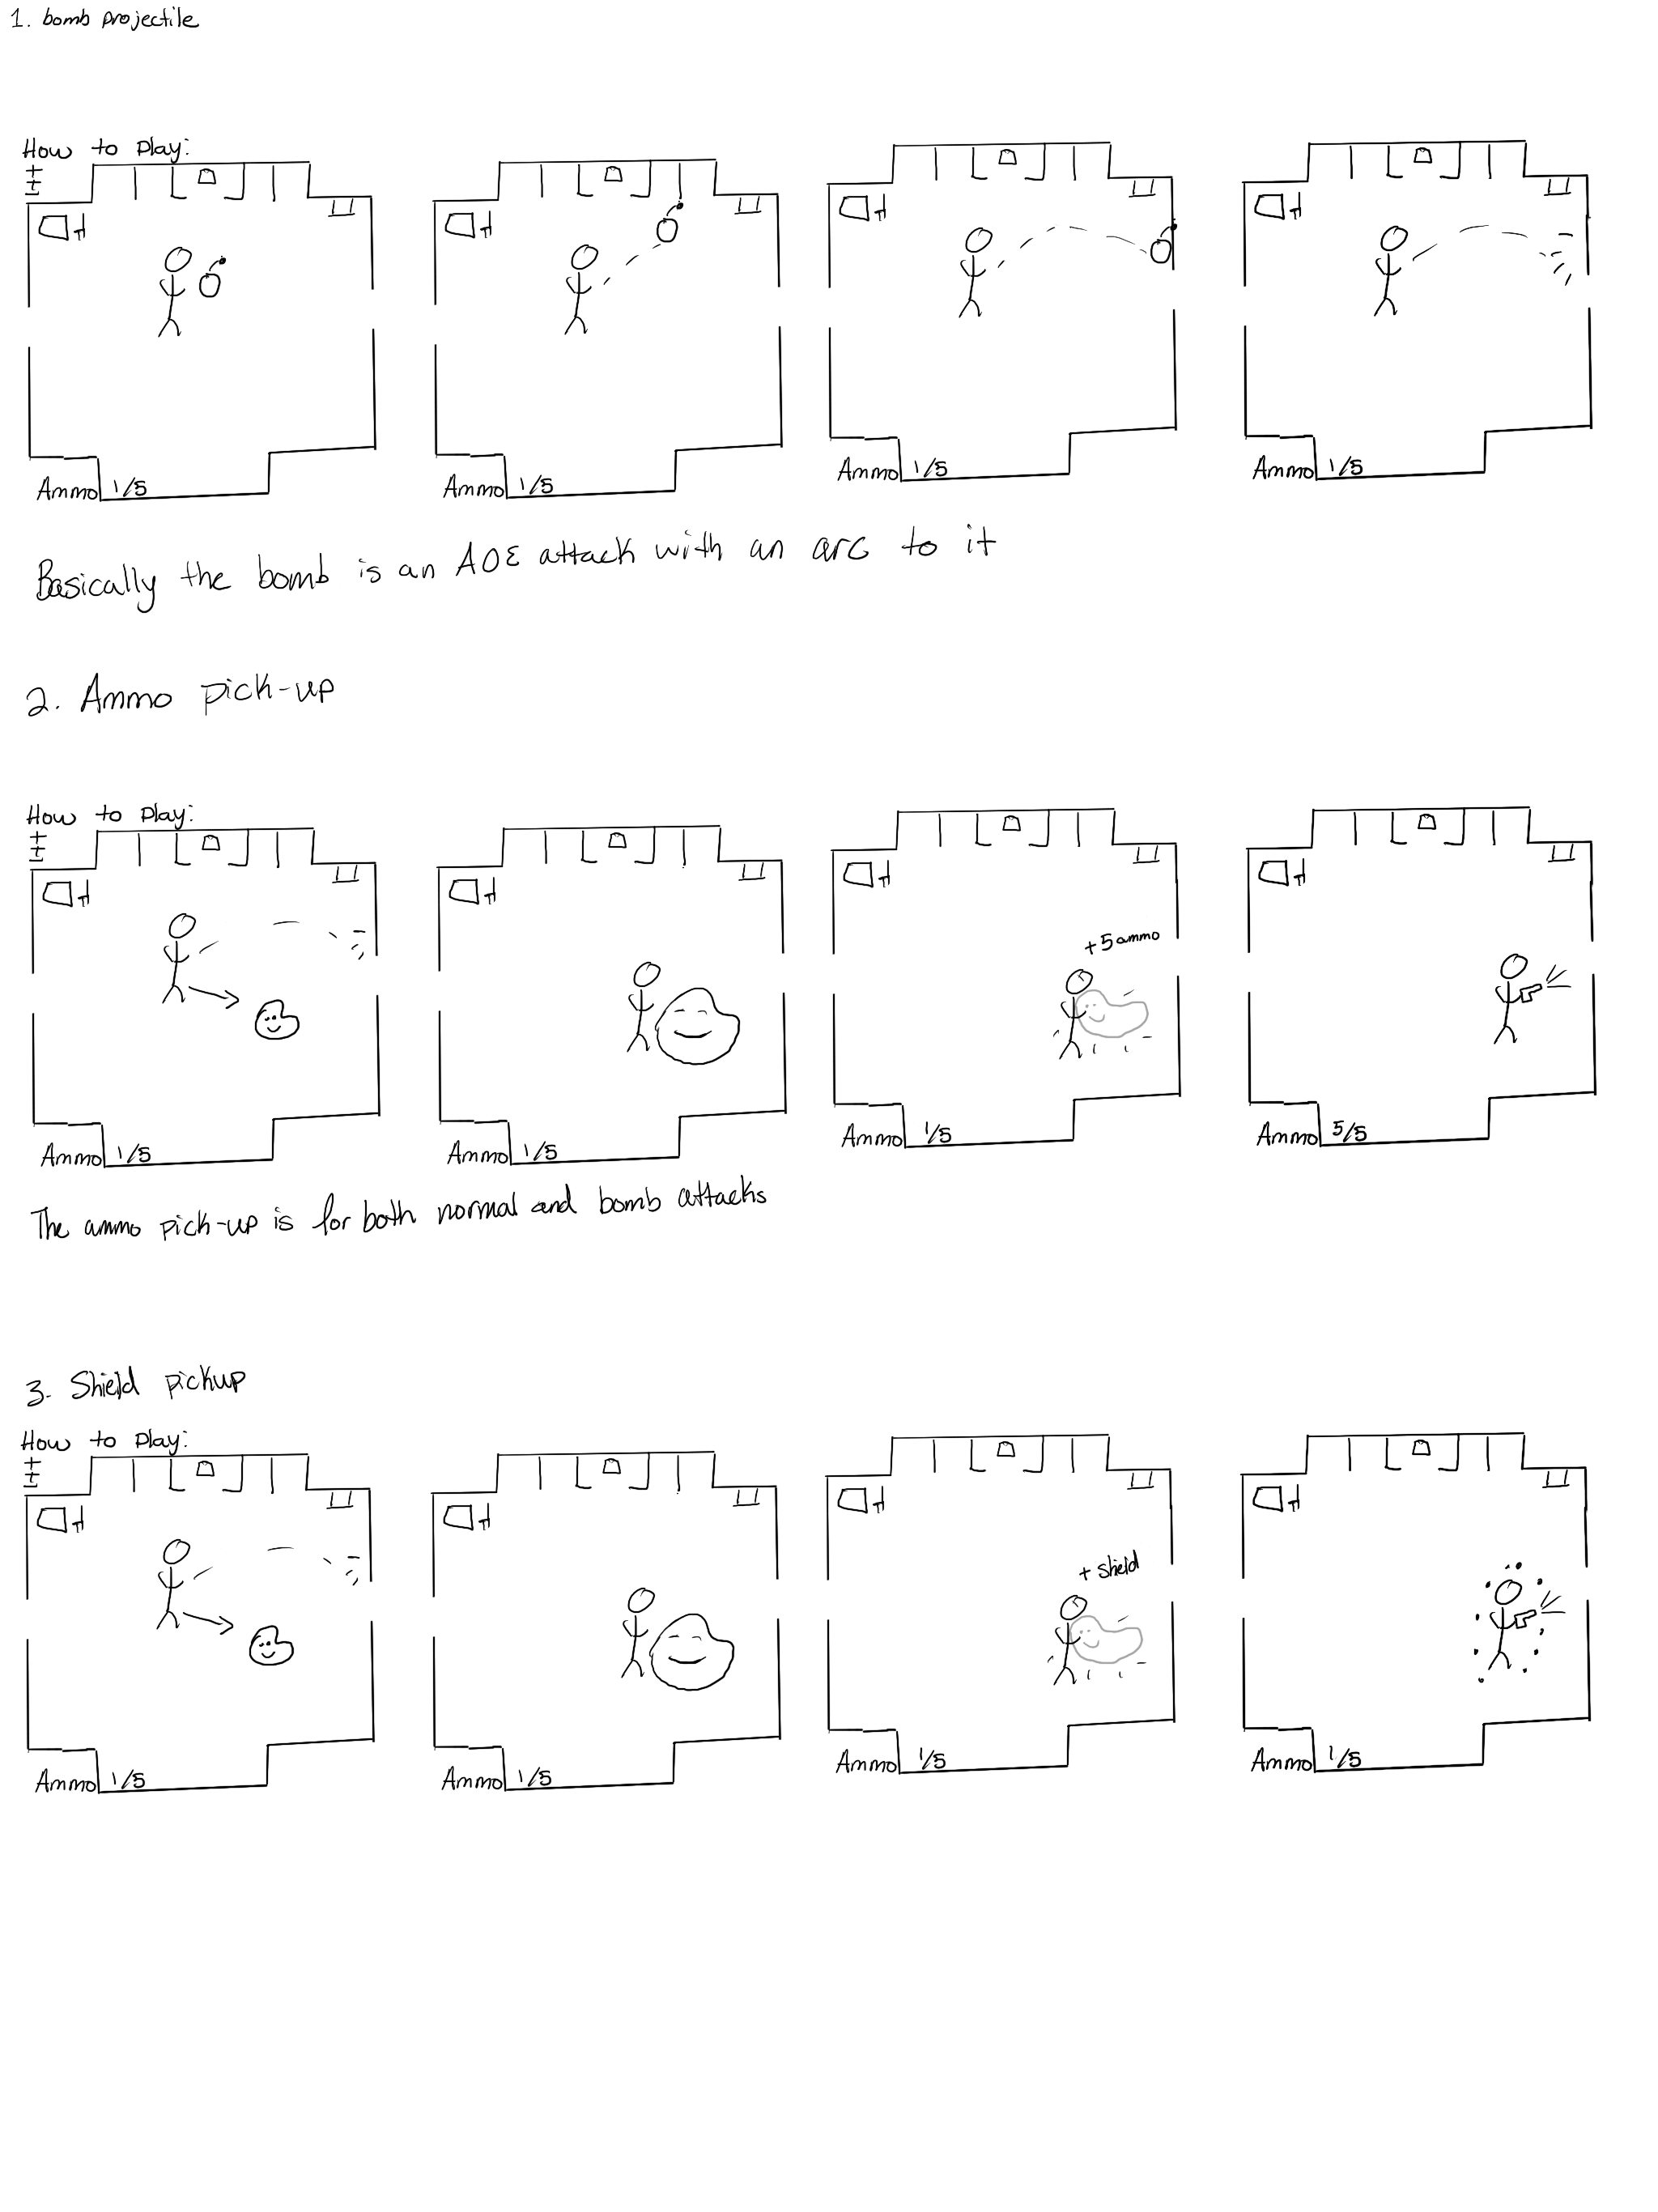 1. bomb projectile
How to Play:
Ammo 1/5
Ammo 1/5
Ammo 1/5
Ammo 1/5
Basically the bomb is an AOE attack with an arc to it
2. Ammo pick-up
How to Play:
+5 ammo
Ammo 1/5
Ammo 1/5
Ammo 1/5
Ammo 5/5
The ammo pick-up is for both normal and bomb attacks
3. Shield pickup
How to Play:
+ shield
Ammo 1/5
Ammo 1/5
Ammo 1/5
Ammo 1/5